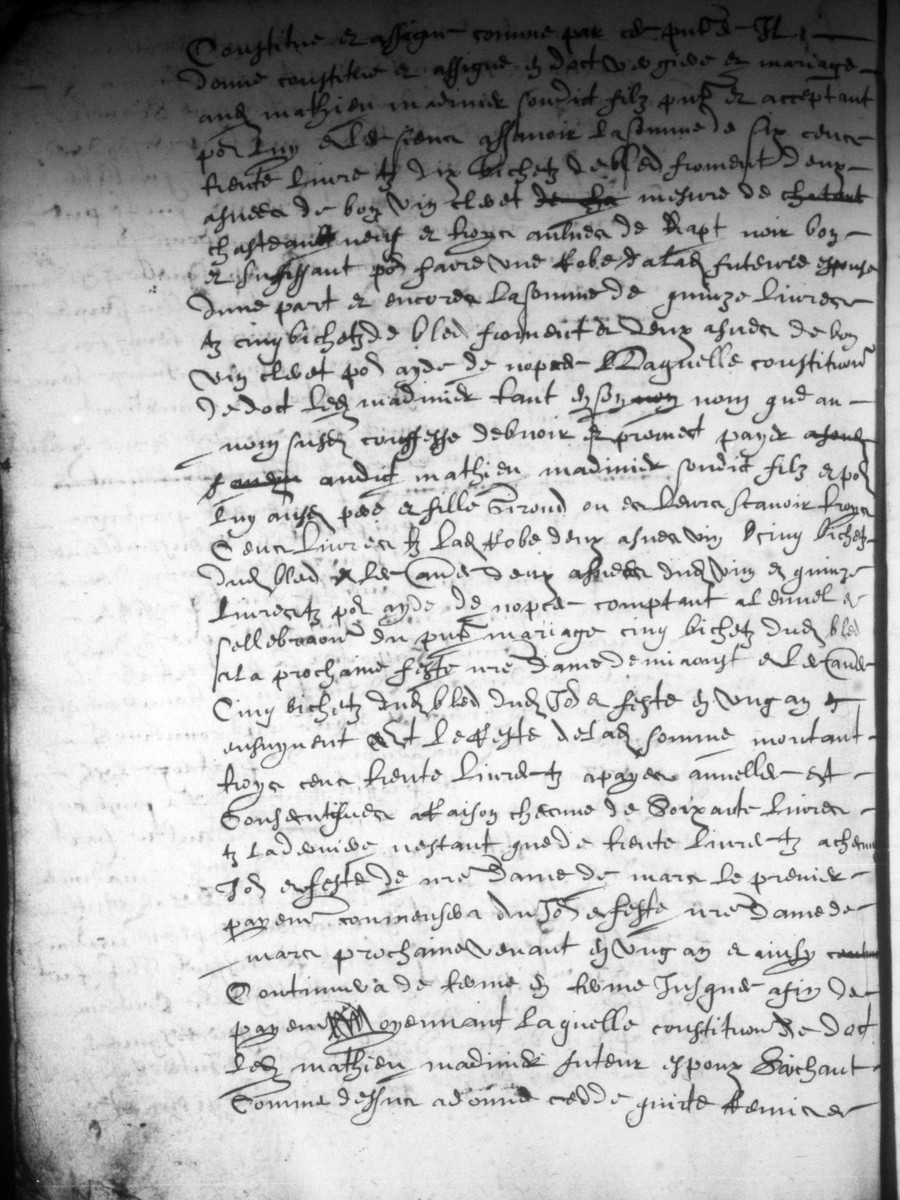 Constitue et assigne comme par ces pntes Il
donne constitue et assigne en dot vergiere et mariage
aud mathieu madinier sondict filz pnt et acceptant
por luy et les siens assavoir la somme de six cens
trente livres tz dix bichetz de bled froment deux
asnees de bon vin cleret mesure de
chasteauneuf et troys aulnes de drapt noir bon
et suffisant por faire une robe a lad future espouse
dune part et encores la somme de quinze livres
tz cinq bichetz de bled froment et deux asnees de bon
vin cleret por ayde de nopces Laquelle constitution
de dot led madinier tant en son nom que au
nom susd confesse debvoir et promect payer
audict mathieu madinier sondict filz et por
luy ausd pere et fille Giroud ou es leurs scavoir troys
Cens livres tz lad robe deux asnees vin cinq bichetz
dud bled et les deux asnees dud vin et quinze
livres tz por ayde de nopces comptant a
sellebration du pnt mariage cinq bichetz dud bled
a la prochaine feste nre dame de mi aoust et les
Cinq bichetz dud bled dud Jor et feste en ung an
ensuyvent et le reste de lad somme montant
troys cens trente livres tz a payes annelles et
Consecutifves a raison chacune de Soixante livres
tz la derniere nestant que de trente livres tz a chacun
Jor et feste de nre dame de mars le premier
payement commensera du Jor et feste nre dame de
mars prochaine venant en ung an et ainsy
Continuera de terme en terme Jusques a fin de
payement moyennant laquelle constitution de dot
led mathieu madinier futeur espoux Saichant
Comme dessus a donne cedde quicte remis et